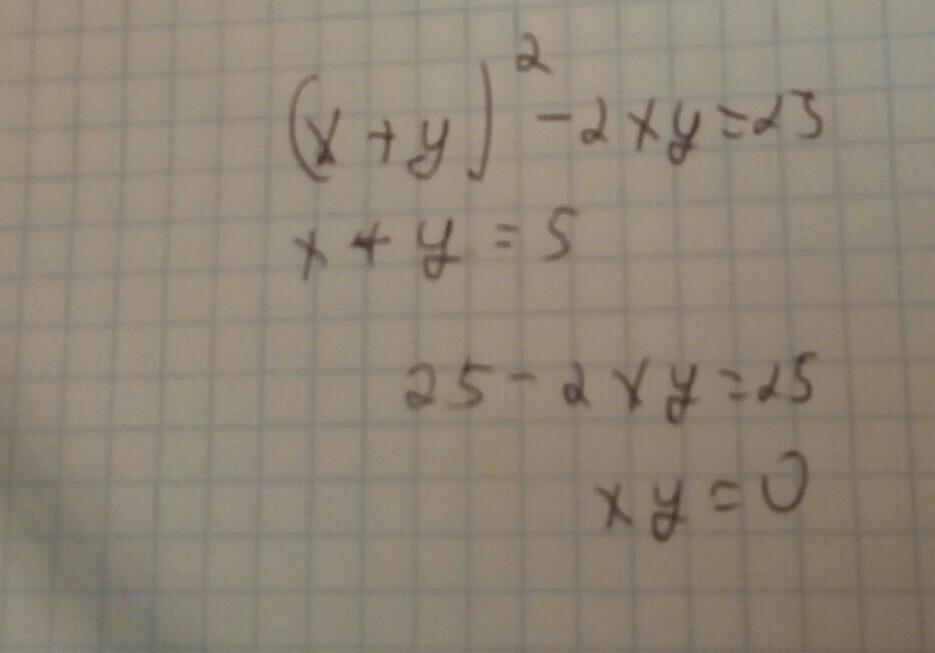 (x+y)²-2xy=25
x+y=5
25-2xy=25
xy=0